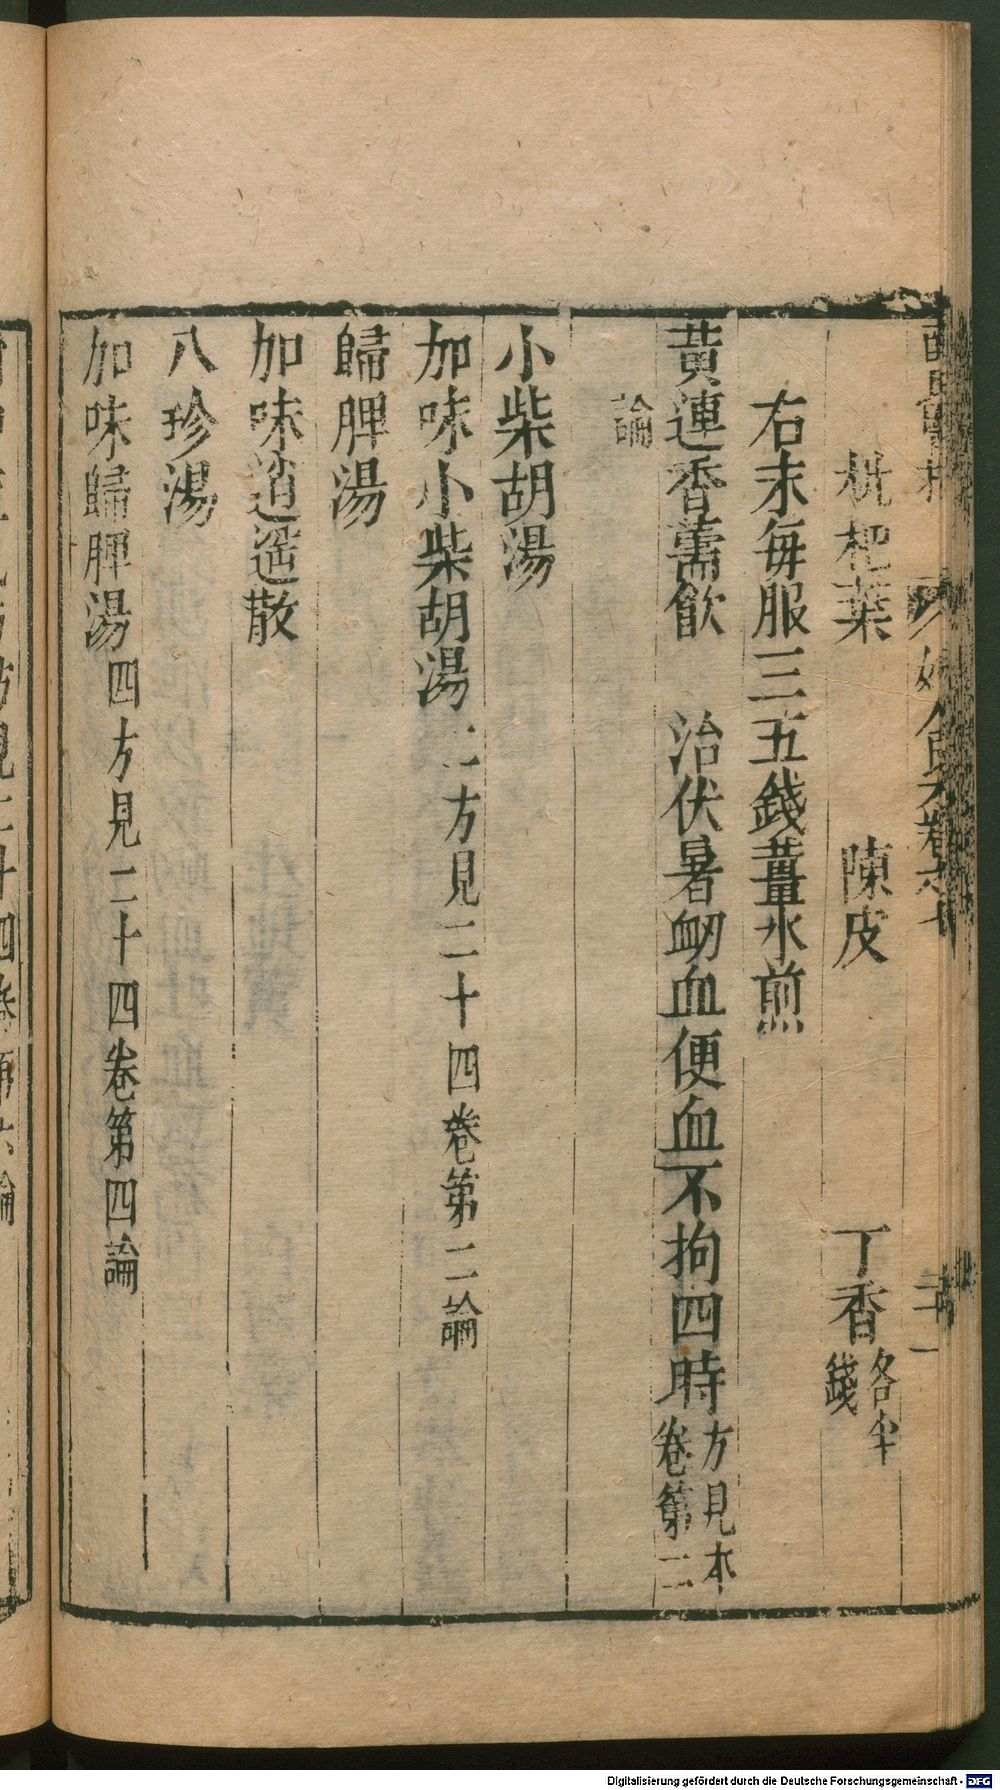 枇杷葉　陳皮　丁香各半錢
右末每服三五錢薑水煎
黃連香薷飲　治伏暑衂血便血不拘四時方見本卷第二
論
小柴胡湯
加味小柴胡湯二方見二十四卷第二論
歸脾湯
加味逍遙散
八珍湯
加味歸脾湯四方見二十四卷第四論
Digitalisierung gefördert durch die Deutsche Forschungsgemeinschaft - DFG